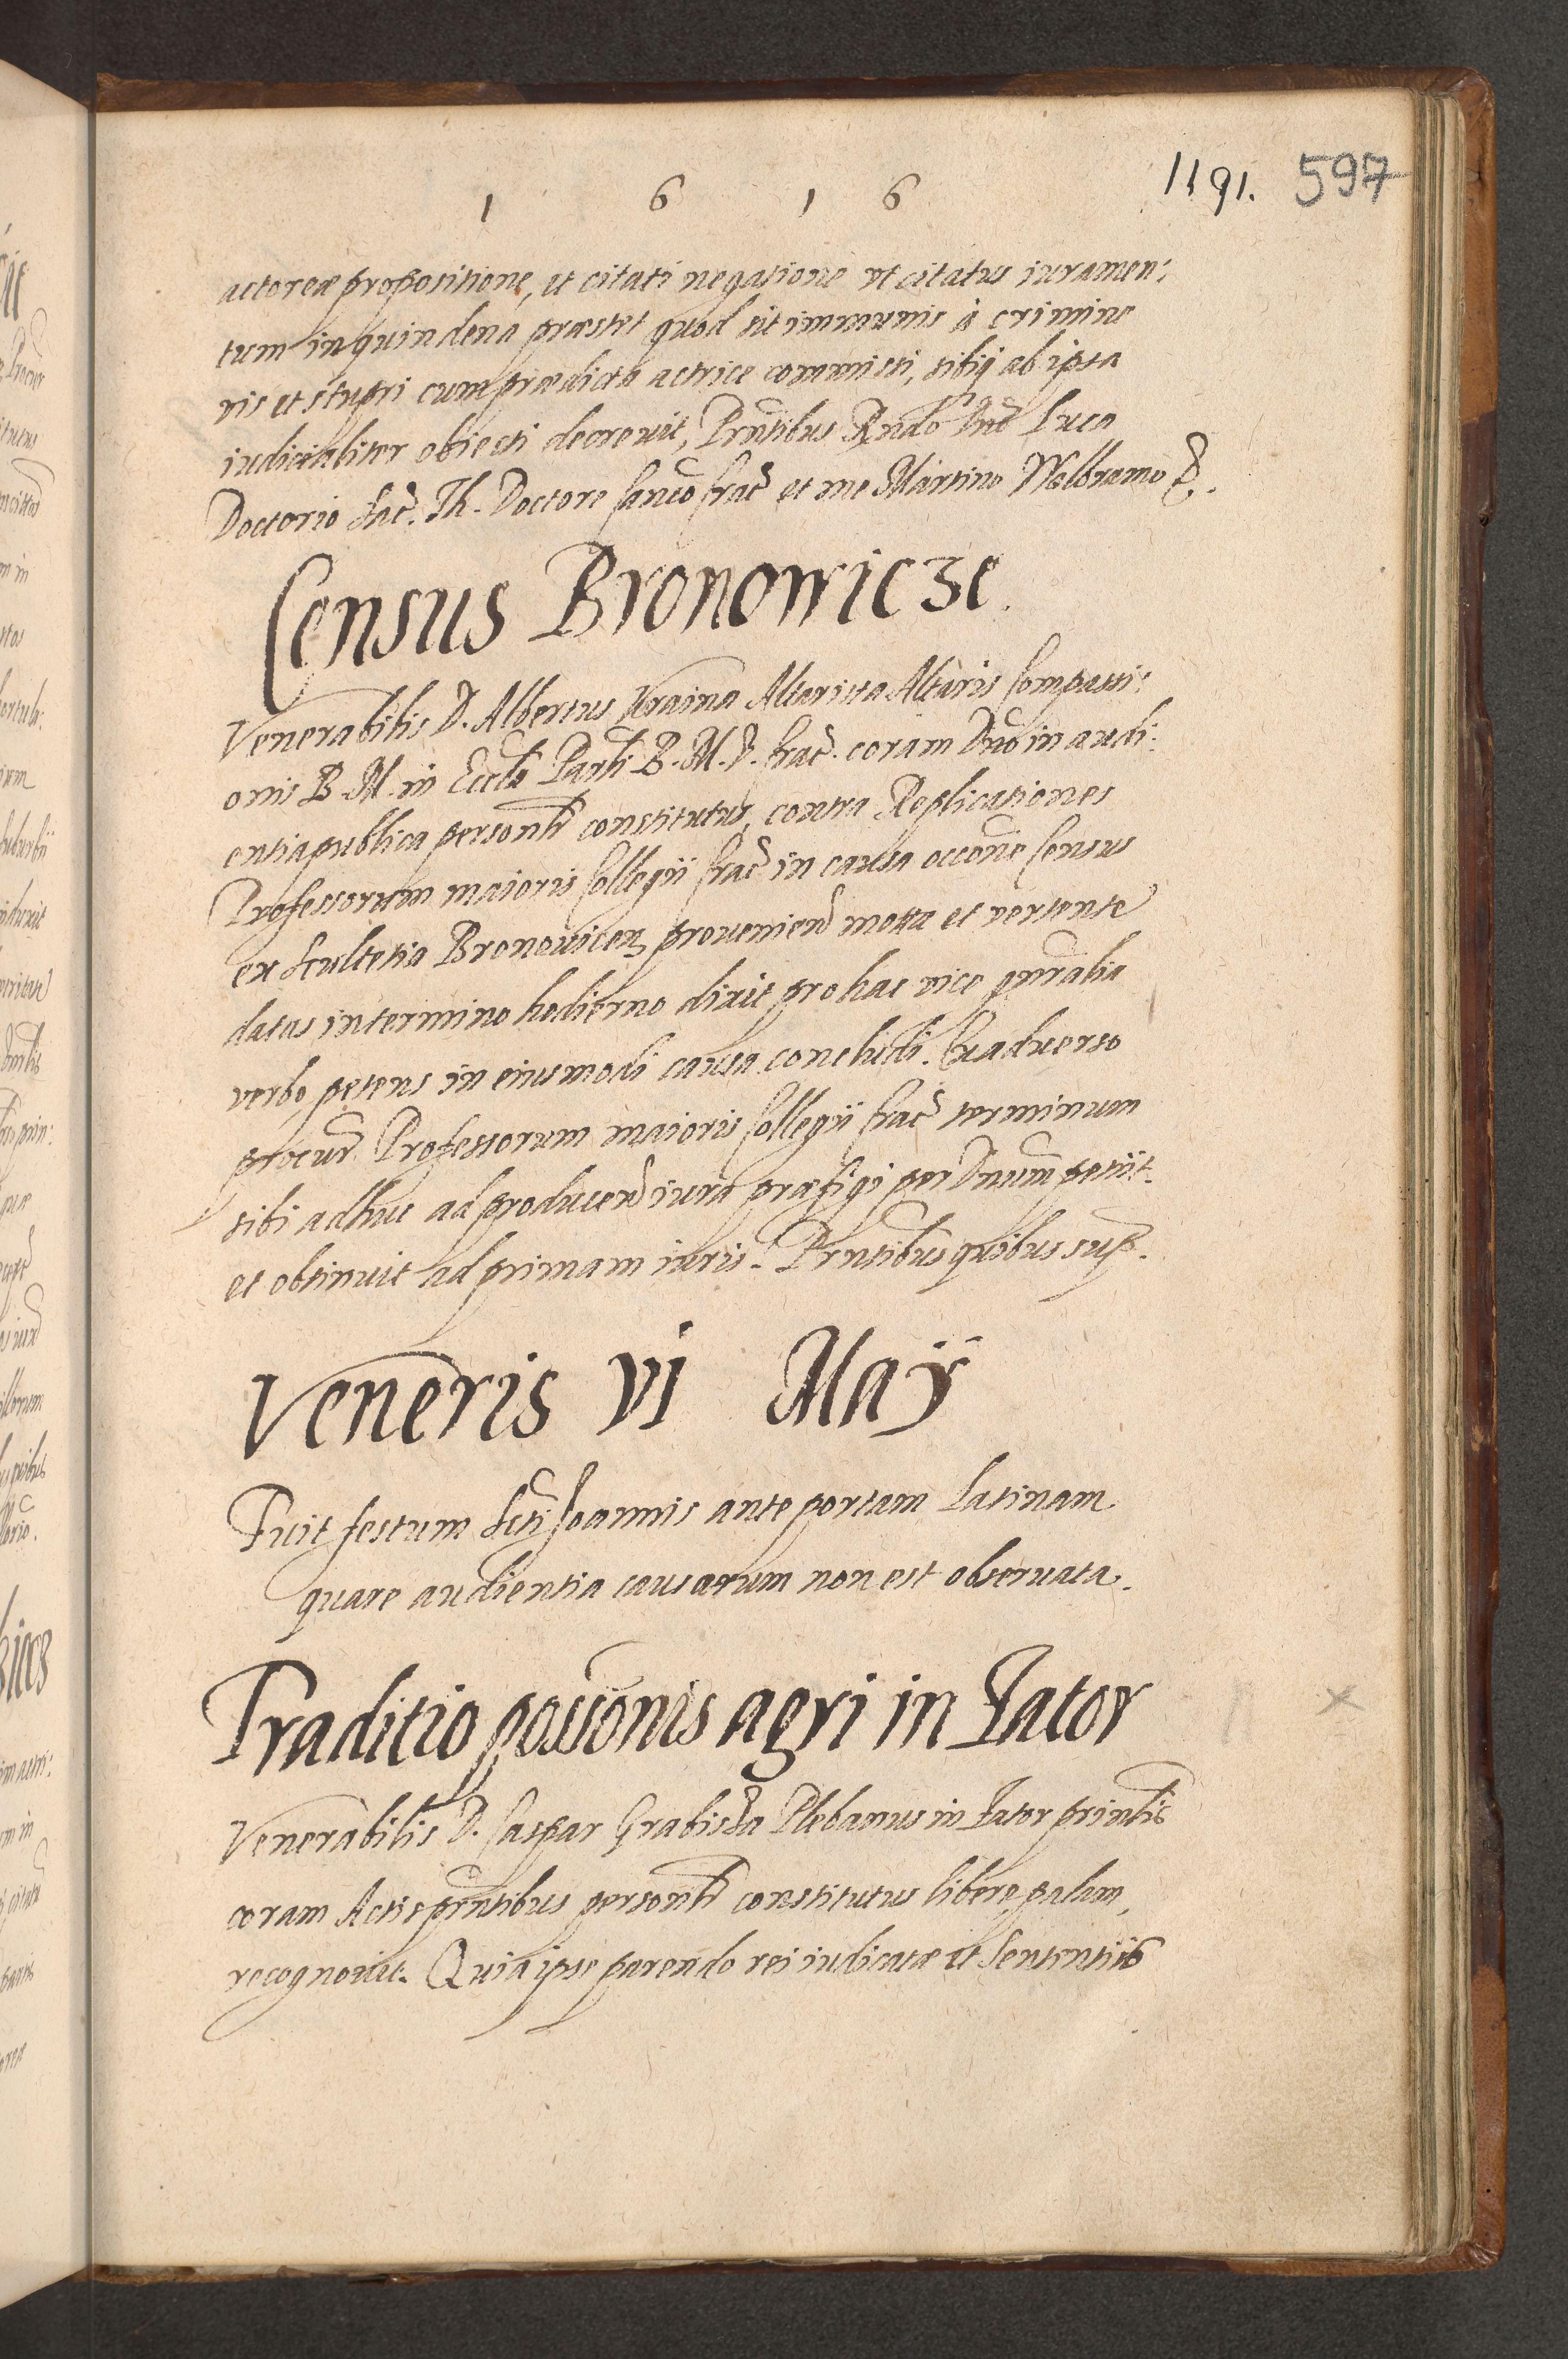 1 6 1 6
1191. 597
actoreæ propositione, et citati negatione vt citatus iuramen:
tum in quindena præstet quod sit immunis à crimine
vis et stupri cum prædicta actrice commissi, sibiq ab ipsa
iudicialiter obiecti decrevit, Prntibus Rndo Dno Luca
Doctorio Sac. Th. Doctore Canco Crac et me Martino Walbramo
Census Bronowicze.
Venerabilis D. Albertus Ukraina Altarista Altaris Compassi:
onis B. M. in Eccla Parli B. M. V. Crac. coram Dno in audi:
entia publica personlr constitutus, contra Replicationes
Professorum maioris Collegii Crac in causa occone Census
ex Scultetia Bronovicen provenien mota et vertente
datas in termino hodierno dixit pro hac vice gnralia
verbo petens in eiusmodi causa concludi. Ex adverso
procur Professorum maioris Collegii Crac terminum
sibi adhuc ad producen iura præfigi per Dnum petiit.
et obtinuit ad primam iuris. Prntibus quibus sup.
Veneris VI Maÿ
Fuit festum Scti Joannis ante portam Latinam
quare audientia causarum non est observata.
Traditio possonis agri in Zator
Venerabilis D. Caspar Grabisza Plebanus in Zator
coram Actis prntibus personlr constitutus libere, palam,
recognovit. Quia ipse parendo rei iudicatæ et Sententiis